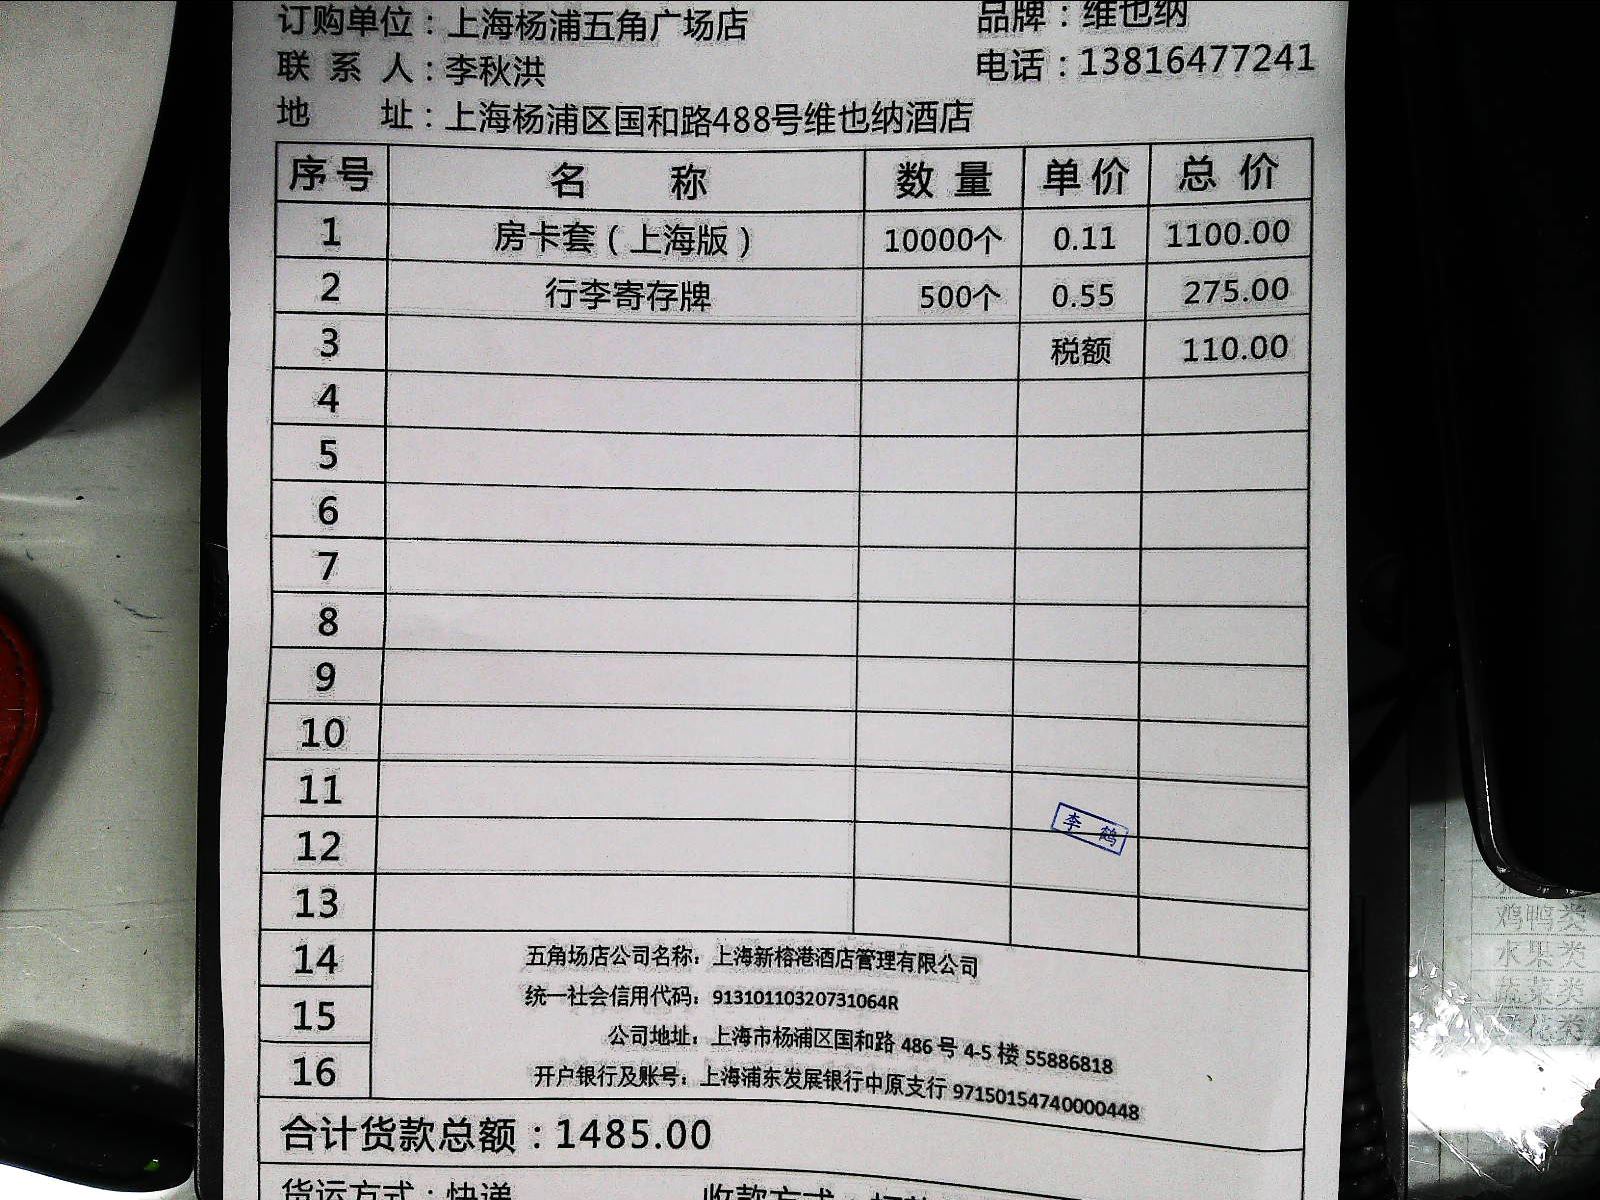 订购单位：上海杨浦五角广场店 品牌：维也纳
联系人：李秋洪 电话：13816477241
地 址：上海杨浦区国和路488号维也纳酒店
序号 名 称 数量 单价 总价
1 房卡套（上海版） 10000个 0.11 1100.00
2 行李寄存牌 500个 0.55 275.00
3 税额 110.00
4
5
6
7
8
9
10
11
李鹤
12
13
14 五角场店公司名称：上海新榕港酒店管理有限公司
15 统一社会信用代码：91310110320731064R
公司地址：上海市杨浦区国和路 486 号 4-5 楼 55886818
16 开户银行及账号：上海浦东发展银行中原支行 97150154740000448
合计货款总额：1485.00
货运方式：快递 收款方式：
鸡鸭类
水果类
蔬菜类